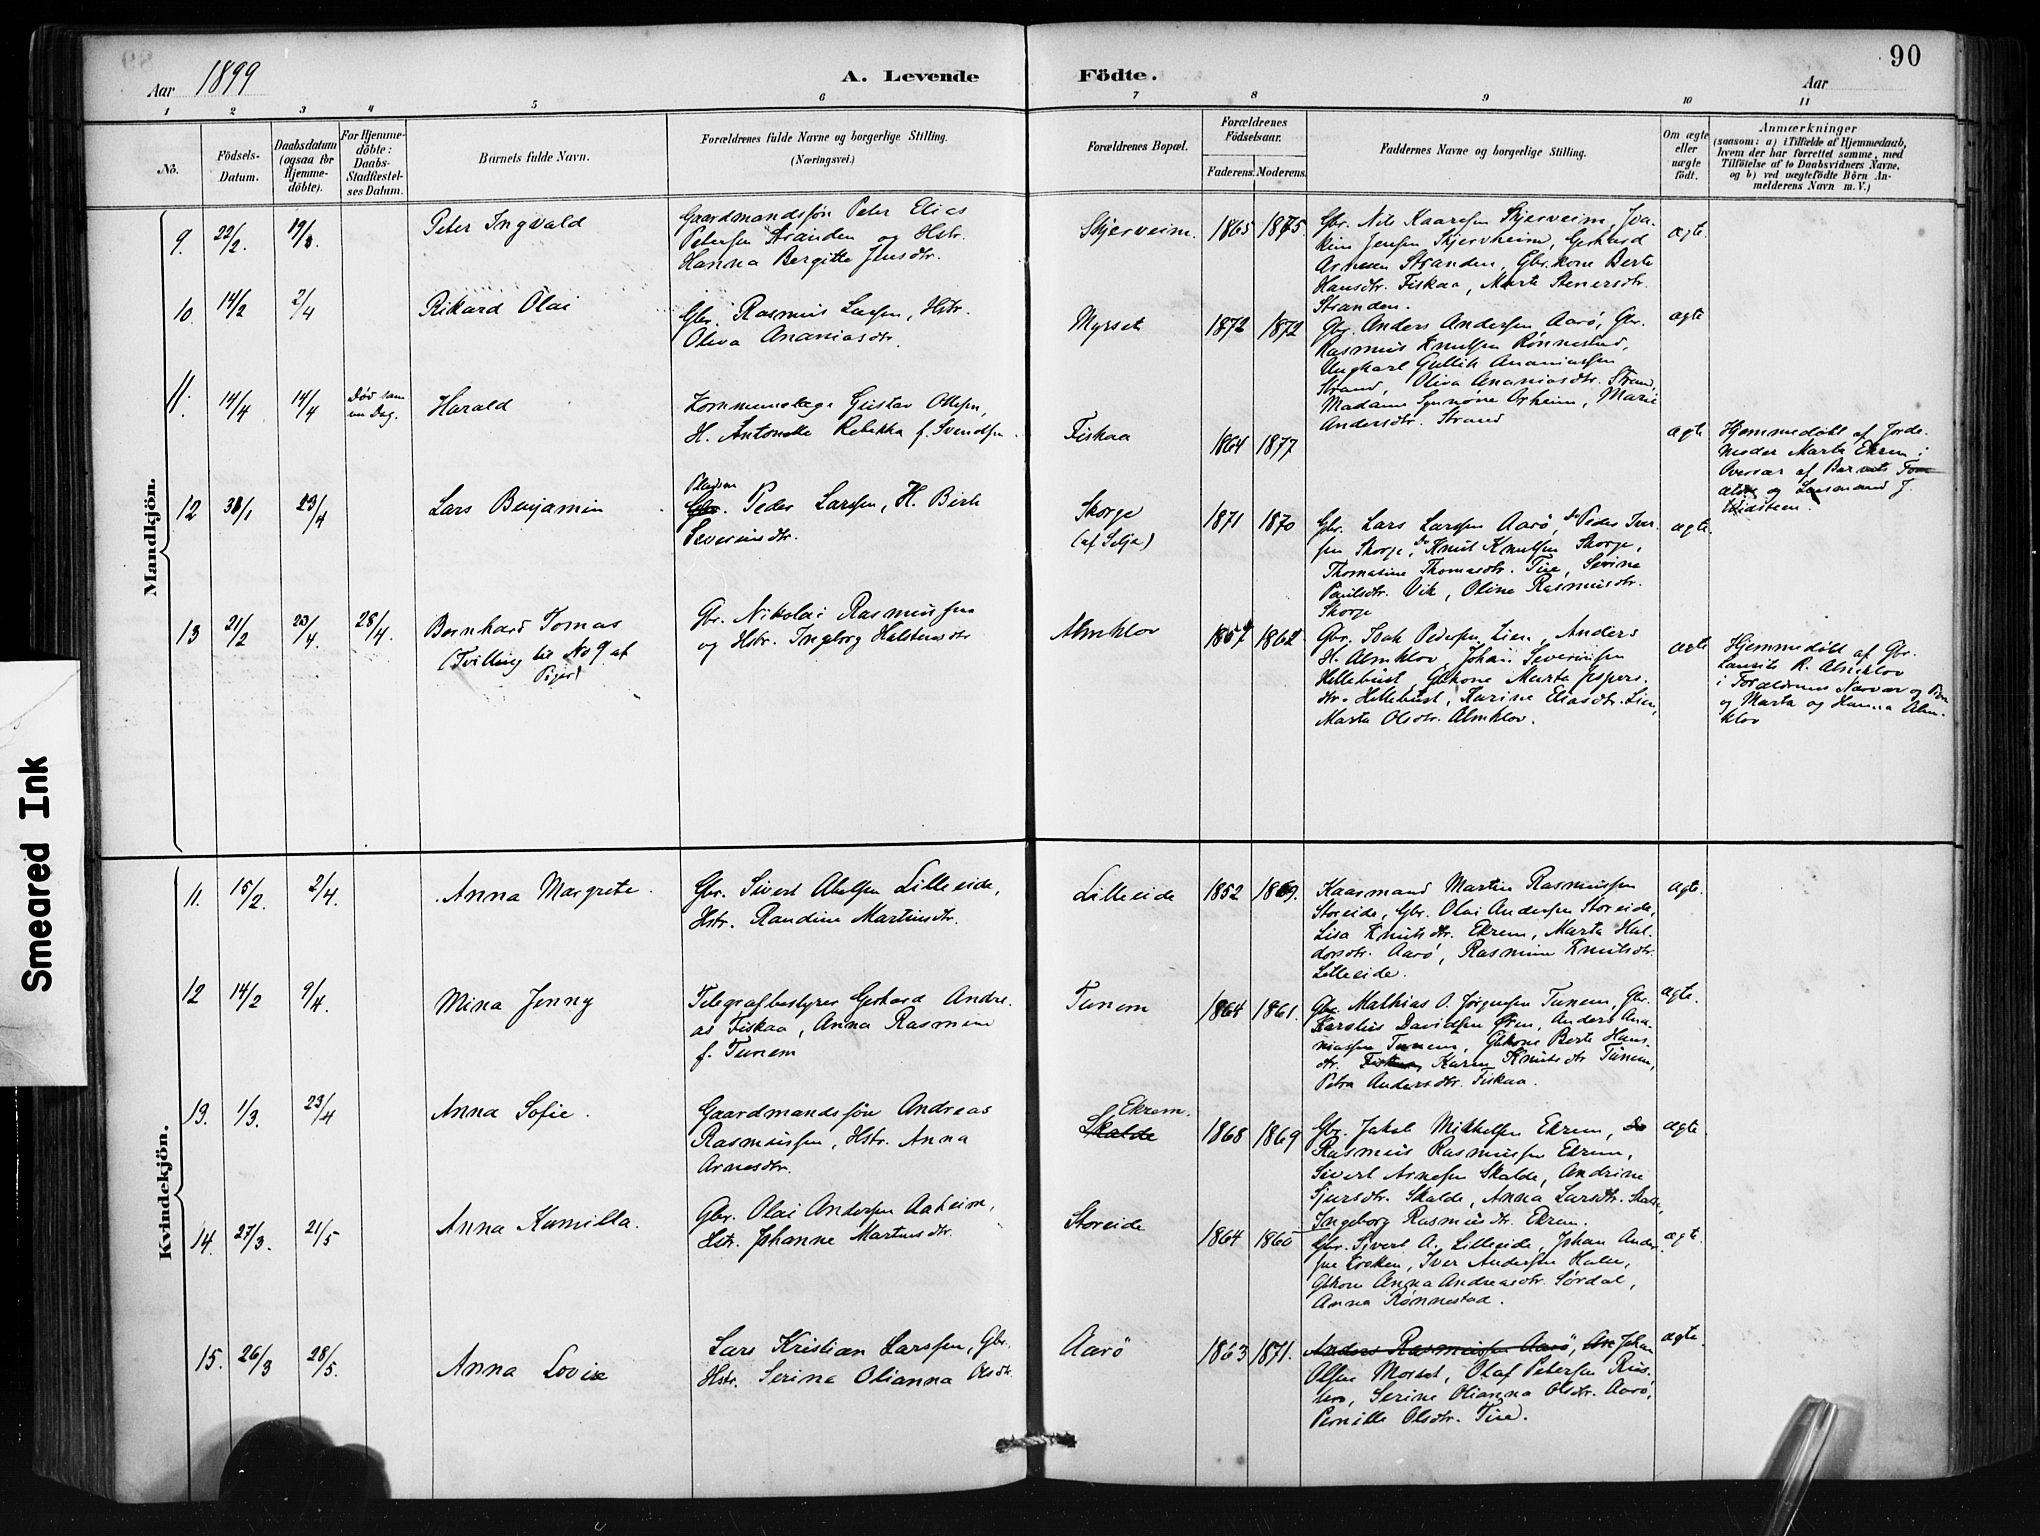 90
Aar 1899
A. Levende Födte.
Aar
1 2 3 4 5 6 7 8 9 10 11
No.
Födsels-Datum.
Daabsdatum (ogsaa for Hjemme-döbte).
For Hjemme-döbte: Daabs-Stadfæstel-ses Datum.
Barnets fulde Navn.
Forældrenes fulde Navne og borgerlige Stilling. (Næringsvei.)
Forældrenes Bopæl.
Forældrenes Födselsaar.
Faderens. Moderens.
Faddernes Navne og borgerlige Stilling.
Om ægte eller uægte født.
Anmærkninger
(saasom: a) i Tilfælde af Hjemmedaab,
hvem der har forrettet samme, med
Tilföielse af to Daabsvidners Navne,
og b) ved uægtefödte Börn An-
melderens Navn m. V.)
Mandkjön.
9. 22/2. 19/3. Peter Ingvald
Gaardmandssön Peter Elias
Petersen Stranden og Hstr.
Hanna Bergitte Jensdtr.
Skjerveim. 1865 1875.
Gbr. Nils Kaaresen Skjerveim, Joa-
kim Jensen Skjervheim, Gerhard
Arnesen Stranden, Gbr.kone Berte
Hansdtr. Fiskaa, Marte Stenersdtr.
Stranden.
ægte.
10. 14/2 2/4 Rikard Olai
Gbr. Rasmus Larsen, Hstr.
Oliva Ananiasdtr.
Myrset 1872 1872
Gbr. Anders Andersen Aarö, Gbr.
Rasmus Knutsen Rönnestad,
Ungkarl Gullik Ananiassen
Strand, Oliva Ananiasdtr. Strand,
Madame Synnöve Orheim, Marie
Andersdtr. Strand
ægte
11. 14/4 14/4 Död sam
me Dag. Harald
Kommunelæge Gustav Olsen,
H. Antonette Rebekka f. Svendsen.
Fiskaa 1864 1877
ægte
Hjemmedöbt af Jorde-
moder Marte Ekrem i
Overvær af Barnets
og Lensmand J.
12 31/1 23/4 Lars Benjamin
Gbr. Peder Larsen, H. Birte
Severinsdtr.
Skorge
(af Selje) 1871 1870
Gbr. Lars Larsen Aarö, Do Peder Iver-
sen Skorge, Do Knut Knutsen Skorge,
Thomasine Thomasdtr. Tue, Sevine
Paulsdtr. Vik, Oline Rasmusdtr.
Skorge
ægte.
13 21/2 23/4 28/4. Bernhard Tomas
(Tvilling til No 9 af
Piger)
Gbr. Nikolai Rasmussen
og Hstr. Ingeborg Halstensdtr
Almklov 1857 1862
Gbr. Isak Pedersen Lien, Anders
H. Almklov, Johan Severinsen
Hellebust, Gbkone Marte Jespers-
dtr. Hellebust, Karine Eliasdtr. Lien,
Marta Olsdtr. Almklov.
ægte
Hjemmedöbt af Gbr.
Laurits R. Almklov
i Forældrenes Nærvær og
og Marta og Hanna Alm-
klov
Kvindekjön.
11. 15/2. 2/4. Anna Margrete.
Gbr. Sivert Abelsen Lilleeide,
Hstr. Randine Martinsdtr.
Lilleeide 1852 1869.
Kaarmand Martin Rasmussen
Storeide, Gbr. Olai Andersen Storeide,
Lisa Knutsdtr. Ekrem, Marta Hal-
dorsdtr. Aarö, Rasmine Knutsdtr.
Lilleeide.
ægte.
12 14/2 9/4. Mina Jenny
Telegrafbestyrer Gerhard Andre-
as Fiskaa, Anna Rasmine
f. Tunem
Tunem 1864 1861.
Gbr Mathias O. Jörgensen Tunem, Gbr.
Karolius Davidsen Ören, Anders Ana-
niassen Tunem, Gbkone Berte Hans-
dtr. Fiskaa, Karen Knutsdtr Tunem,
Petra Andersdtr. Fiskaa.
ægte.
13. 1/3. 23/4 Anna Sofie.
Gaardmandssön Andreas
Rasmussen, Hstr. Anna
Arnesdtr.
Ekrem.
Skalde 1868 1869
Gbr. Jakob Mikkelsen Ekrem, Do
Rasmus Rasmussen Ekrem,
Sivert Arnesen Skalde, Andrine
Sjursdtr. Skalde, Anna Larsdtr. Skalde,
Ingeborg Rasmusdtr. Ekrem.
ægte
14. 27/3. 21/5 Anna Kamilla.
Gbr. Olai Andersen Aaheim,
Hstr. Johanne Martinsdtr.
Storeide 1864 1865
Gbr. Sivert A. Lilleeide, Johan Ander-
sen Kroken, Iver Andersen Hatle,
Gbkone Anna Andreasdtr. Sördal,
Anna Rönnestad.
ægte.
15. 26/3 28/5. Anna Lovise
Lars Kristian Larssen, Gbr.
Hstr. Serina Olianna Olsdtr.
Aarö 1863 1871.
Anders Rasmussen Aarö, Johan
Olsen Morset, Olaf Petersen
Serine Olianna Olsdtr. Aarö,
Pernille Olsdtr. Tue.
ægte
Smeared Ink